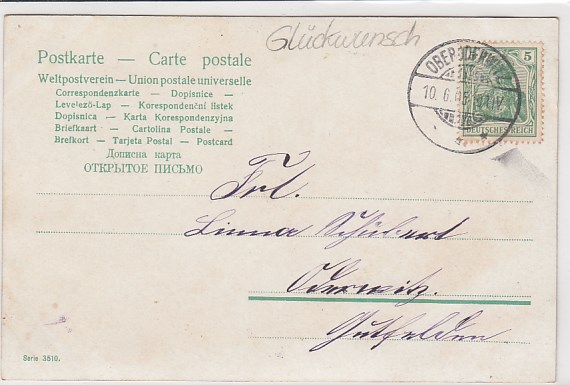 Glückwunsch
Postkarte — Carte postale
Weltpostverein — Union postale universelle
Correspondenzkarte — Dopisnice —
Levelező-Lap — Korespondenční lístek
Dopisnica — Karta Korespondenzyjna
Briefkaart — Cartolina Postale —
Brefkort — Tarjeta Postal — Postcard
Дописна карта
ОТКРЫТОЕ ПИСЬМО
5
DEUTSCHES REICH
10.6.05
Frl.
Linna Schubert
Oderwitz.
Gutfelden
Serie 3516.